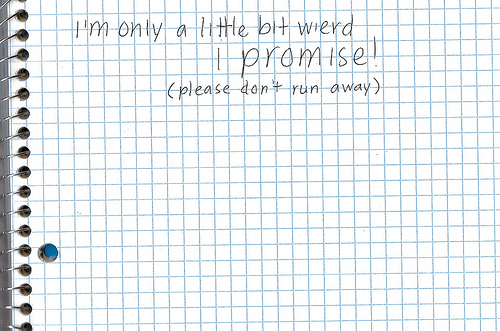 I'm only a little bit wierd
I promise!
(please don't run away)